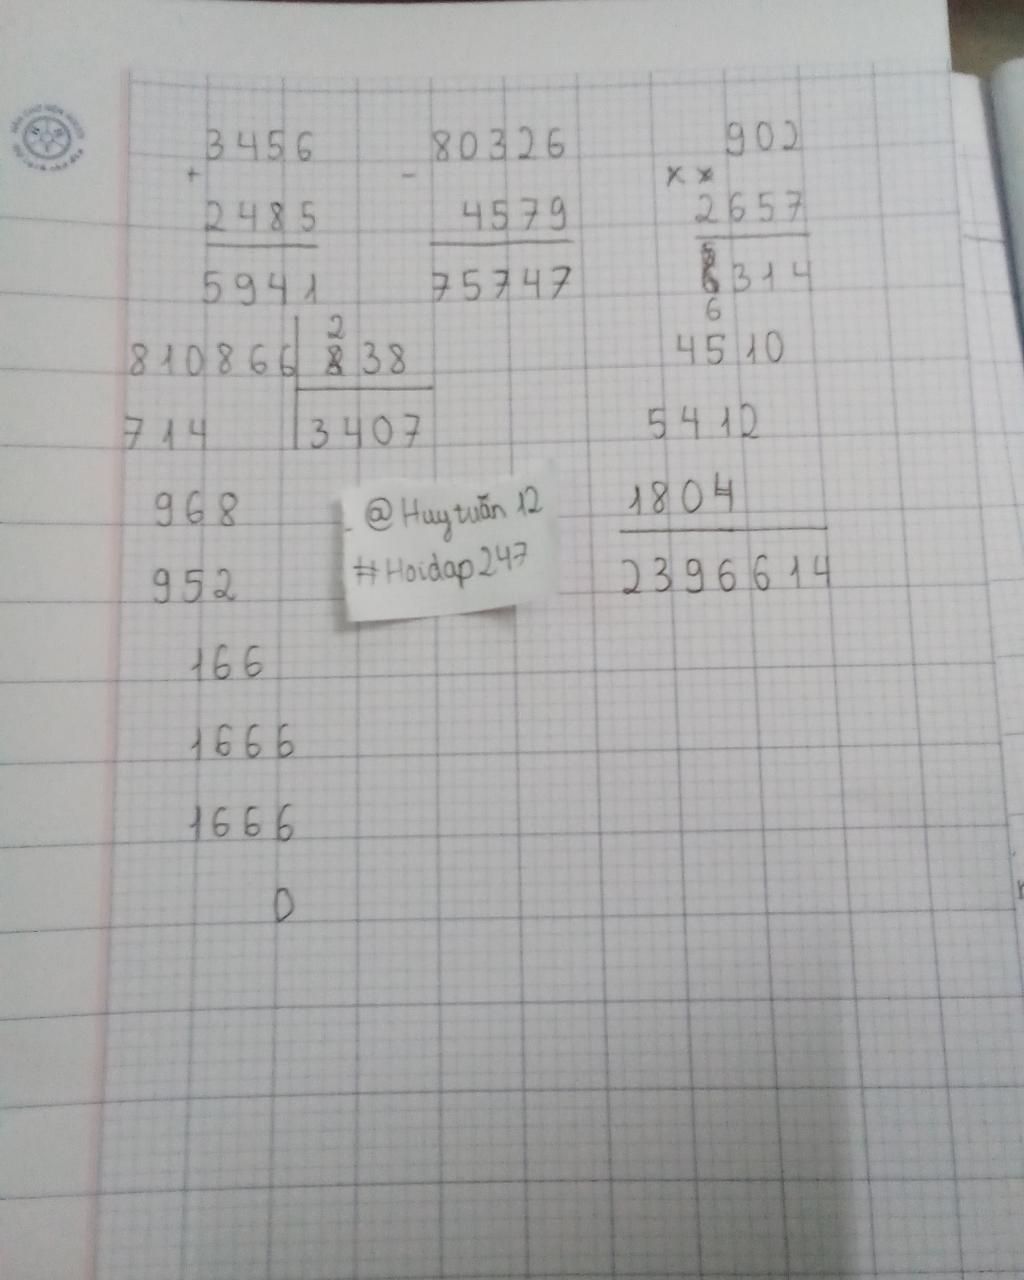 3456
+
2485
5941
80326
-
4579
75747
902
x x
2657
6314
4510
5412
1804
2396614
810866 238
714 3407
968
952
166
1666
1666
0
@Huytuấn 12
#Hoidap247